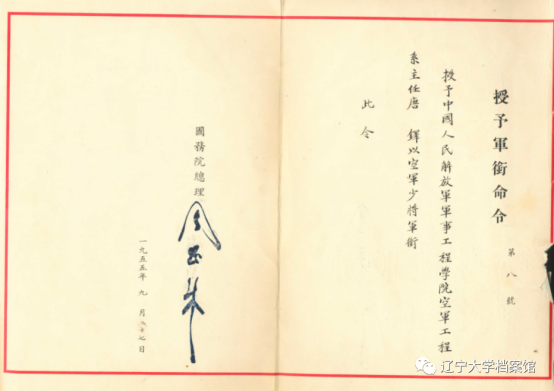 授予軍銜命令
第八號
授予中國人民解放軍軍事工程學院空軍工程
系主任唐 鐸以空軍少將軍銜
此令
國務院總理
周恩來
一九五五年 九 月 日
辽宁大学档案馆